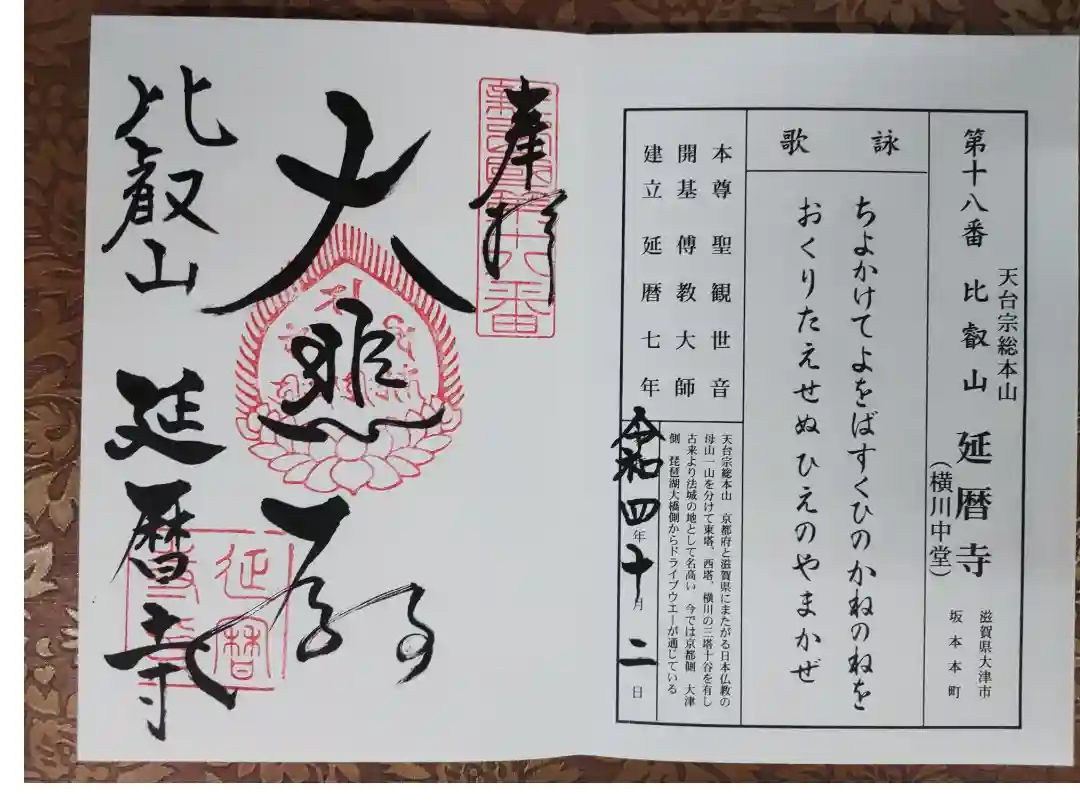 天台宗総本山
第十八番 比叡山 延暦寺
(横川中堂)
滋賀県大津市
坂本本町
詠歌
ちよかけてよをばすくひのかねのねを
おくりたえせぬひえのやまかぜ
本尊 聖観世音
開基 傅教大師
建立 延暦七年
天台宗総本山 京都府と滋賀県にまたがる日本仏教の
母山一山を分けて東塔、西塔、横川の三塔十谷を有し
古来より法城の地として名高い 今では京都側 大津
側 琵琶湖大橋側からドライブウエーが通じている
令和四年十月二日
奉拝
第十八番
大悲閣
比叡山 延暦寺
延暦
寺章